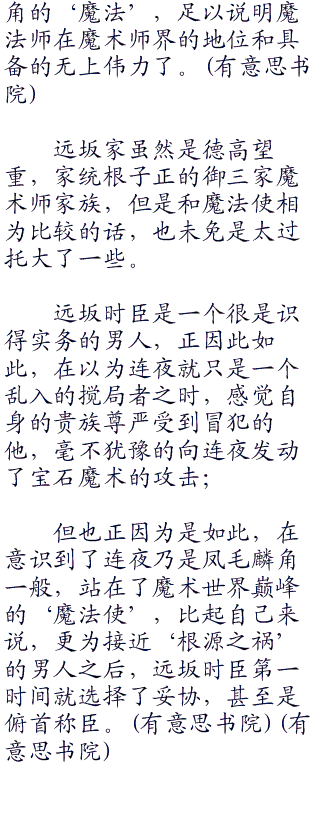 角的‘魔法’，足以说明魔
法师在魔术师界的地位和具
备的无上伟力了。(有意思书
院)
远坂家虽然是德高望
重，家统根子正的御三家魔
术师家族，但是和魔法使相
为比较的话，也未免是太过
托大了一些。
远坂时臣是一个很是识
得实务的男人，正因此如
此，在以为连夜就只是一个
乱入的搅局者之时，感觉自
身的贵族尊严受到冒犯的
他，毫不犹豫的向连夜发动
了宝石魔术的攻击；
但也正因为是如此，在
意识到了连夜乃是凤毛麟角
一般，站在了魔术世界巅峰
的‘魔法使’，比起自己来
说，更为接近‘根源之祸’
的男人之后，远坂时臣第一
时间就选择了妥协，甚至是
俯首称臣。(有意思书院)(有
意思书院)